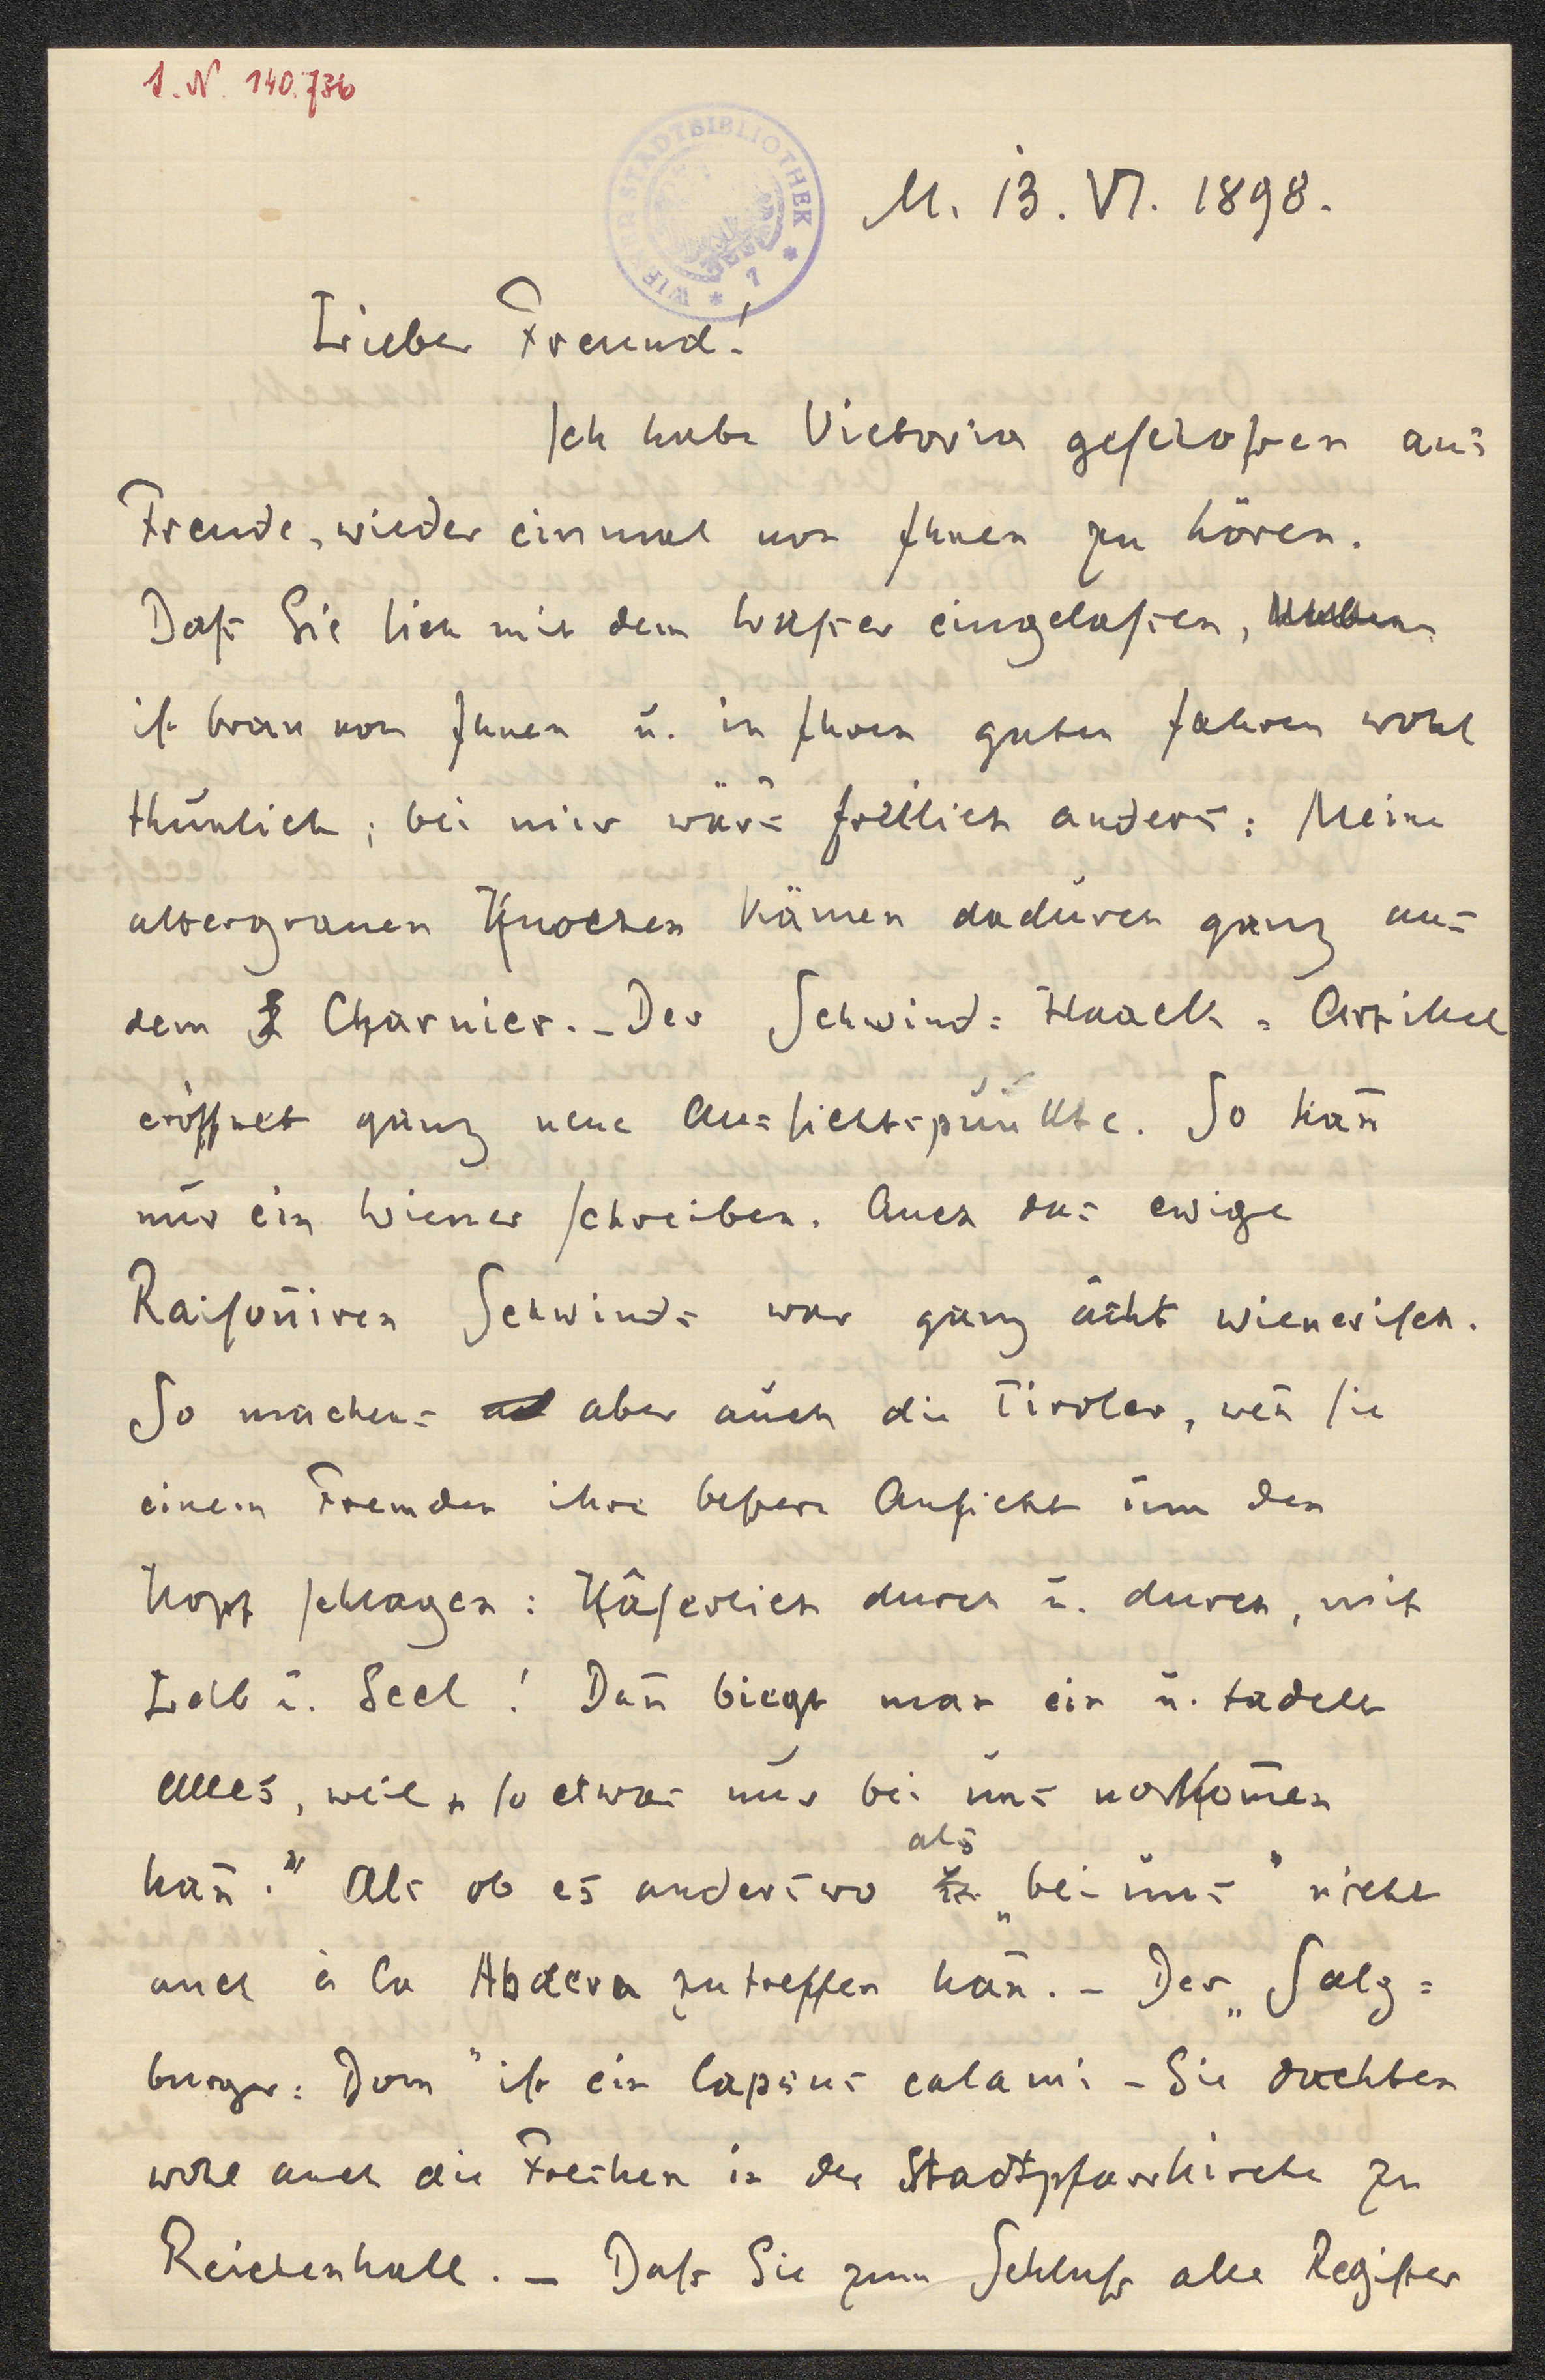 I. N. 140.736
WIENER STADTBIBLIOTHEK * 7 *
M. 13. VI. 1898.
Lieber Freund!
Ich habe Victoria geschoßen aus
Freude, wieder einmal von Ihnen zu hören.
Daß Sie sich mit dem Waßer eingelaßen,
ist brav von Ihnen u. in Ihren guten Jahren wohl
thunlich; bei mir wärs freilich anders: Meine
altergrauen Knochen kämen dadurch ganz aus
dem Charnier. – Der Schwind-Haack-Artikel
eröffnet ganz neue Aussichtspunkte. So kan̄
nur ein Wiener schreiben. Auch das ewige
Raison̄iren Schwinds war ganz ächt wienerisch.
So machens aber auch die Tiroler, wen̄ sie
einem Fremden ihre beßere Ansicht um den
Kopf schlagen: Käserlich durch u. durch, mit
Leib u. Seel! Dan̄ biegt man ein u. tadelt
Alles, weil „so etwas nur bei uns vorkom̄en
kan̄." Als ob es anderswo als „bei uns" nicht
auch à la Abdera zutreffen kan̄. – Der „Salz-
burger-Dom" ist ein lapsus calami – Sie dachten
wohl auch die Fresken in der Stadtpfarrkirche zu
Reichenhall. – Daß Sie zum Schluß alle Register